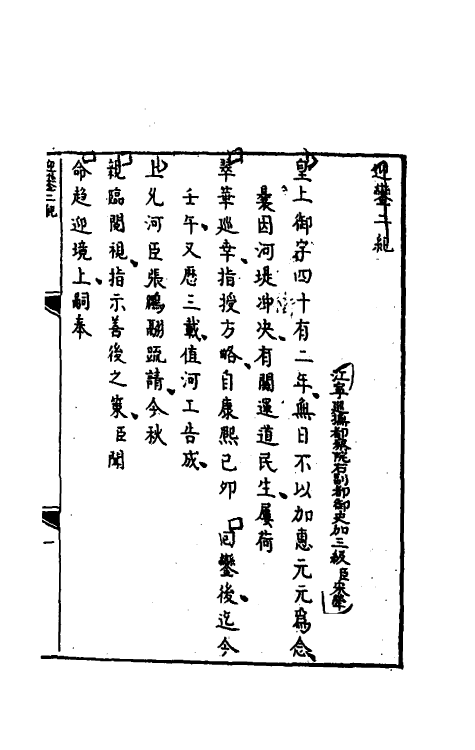 迎鑾二紀
江寧巡撫都察院右副都御史加三級臣宋犖
皇上御宇四十有二年無日不以加惠元元爲念
曩因河堤冲决有關運道民生屢荷
翠華巡幸指授方略自康熙己卯回鑾後迄今
壬午又歷三載值河工告成
上允河臣張鵬翮疏請今秋
親臨閱視指示善後之策臣聞
命趨迎境上嗣奉
迎鑾二紀
一